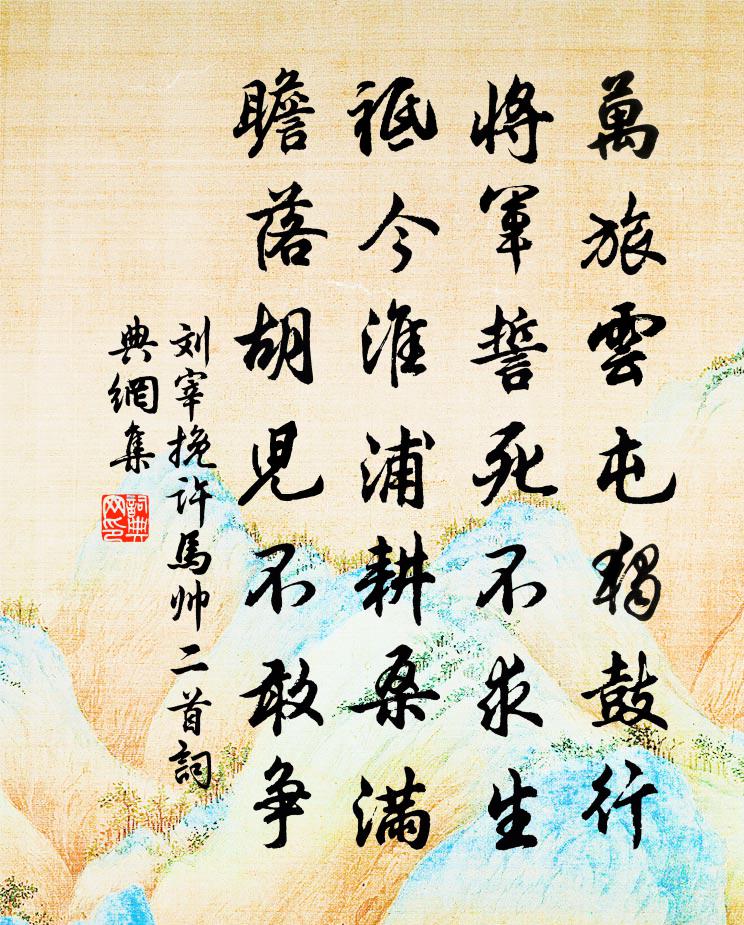 萬旅雲屯獨鼓行
將軍誓死不求生
祗今淮浦耕桑满
瞻落胡兒不敢争
刘宰挽许馬帅二首詞
典網集
詞典网印